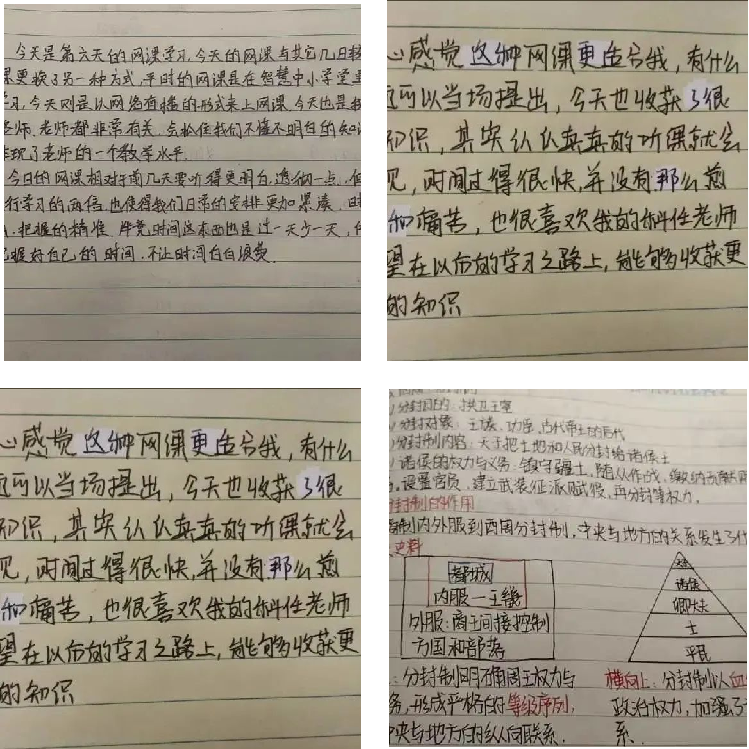 今天是第六天的网课学习,今天的网课与其它几日较
课更换了另一种方式,平时的网课是在智慧中小学堂
学习,今天则是以网络直播的形式来上网课,今天也是
老师,老师都非常有关,会抓住我们不懂不明白的知识
体现了老师的一个教学水平.
今日的网课相对于前几天要听得更明白,透彻一点,
行学习的
,也使得我们日常的安排更加紧凑,
,把握的精准,毕竟,时间这东西也是过一天少一天,
把握好自己的时间,不让时间白白浪费.
心感觉这种网课更适合我,有什么
可以当场提出,今天也收获了很
知识,其实认认真真的听课就会
见,时间过得很快,并没有那么煎
和痛苦,也很喜欢我的科任老师
望在以后的学习之路上,能够收获更
的知识
心感觉这种网课更适合我,有什么
可以当场提出,今天也收获了很
知识,其实认认真真的听课就会
见,时间过得很快,并没有那么煎
和痛苦,也很喜欢我的科任老师
望在以后的学习之路上,能够收获更
的知识
分封目的:拱卫王室
分封对象:王族、功臣、古代帝王的后代
分封制内容:天子把土地和人民分封给诸侯王
诸侯的权力与义务:镇守疆土,随从作战,缴纳
设置官员、建立武装、征派赋役、再分封等权力.
封制的作用
制内外服到西周分封制,中央与地方的关系发生了什
史料
都城
内服—王畿
外服:商王间接控制
方国和部落
诸侯
卿大夫
士
平民
:分封制明确周王权力与
务,形成严格的等级序列,
中央与地方的纵向联系.
横向上:分封制以血
政治权力,加强了
系.